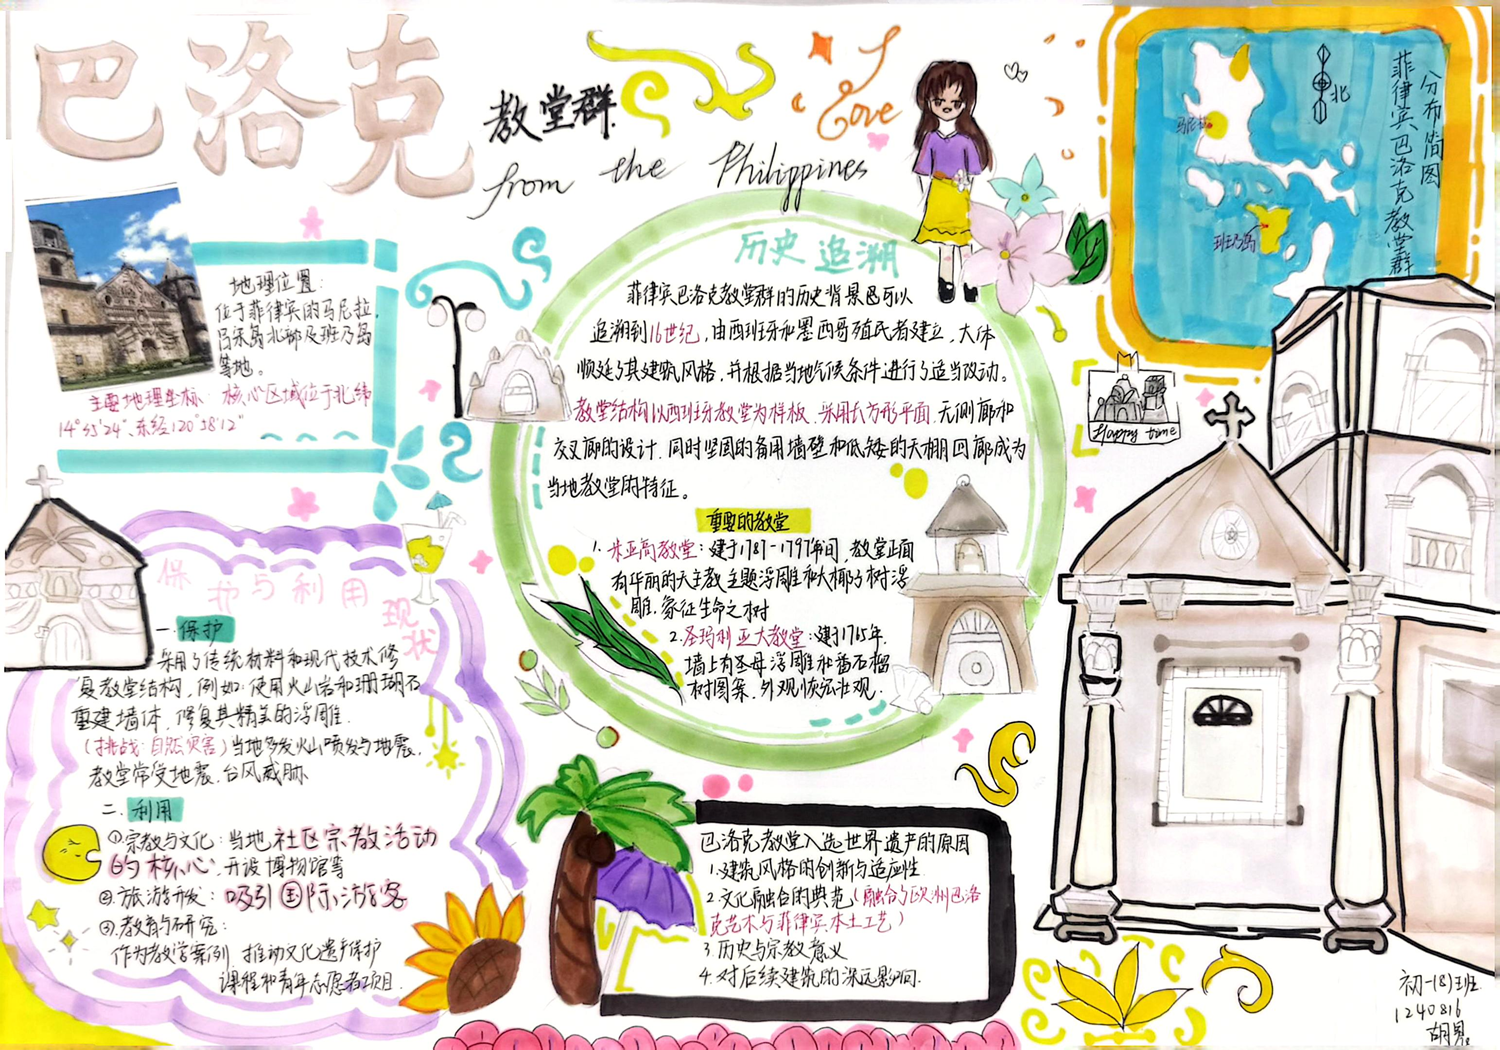 巴洛克
教堂群
from the Philippines
I
Love
地理位置:
位于菲律宾的马尼拉,
吕宋岛北部及班乃岛
等地。
主要地理坐标: 核心区域位于北纬
14°35'24"、东经120°58'12"
历史追溯
菲律宾巴洛克教堂群的历史背景可以
追溯到16世纪,由西班牙和墨西哥殖民者建立,大体
顺延了其建筑风格,并根据当地气候条件进行了适当改动。
教堂结构以西班牙教堂为样板,采用长方形平面,无侧廊和
交叉廊的设计.同时坚固的备用墙壁和低矮的天棚回廊成为
当地教堂的特征。
重要的教堂
1.米亚高教堂:建于1787-1797年间,教堂正面
有华丽的天主教主题浮雕和大椰子树浮
雕,象征生命之树
2.圣玛利亚大教堂:建于1765年,
墙上有圣母浮雕和番石榴
树图案,外观恢弘壮观.
菲律宾巴洛克教堂群
分布简图
北
马尼拉
班乃岛
Happy time
保护与利用
现状
一.保护
采用了传统材料和现代技术修
复教堂结构,例如:使用火山岩和珊瑚石
重建墙体,修复其精美的浮雕.
(挑战:自然灾害)当地多发火山喷发与地震,
教堂常受地震.台风威胁.
二.利用
①宗教与文化:当地社区宗教活动
的核心,开设博物馆等
②旅游开发:吸引国际游客
③教育与研究:
作为教学案例,推动文化遗产保护
课程和青年志愿者项目.
巴洛克教堂入选世界遗产的原因
1.建筑风格的创新与适应性
2.文化融合的典范(融合了欧洲巴洛
克艺术与菲律宾本土工艺)
3.历史与宗教意义
4.对后续建筑的深远影响.
初一(8)班
1240816